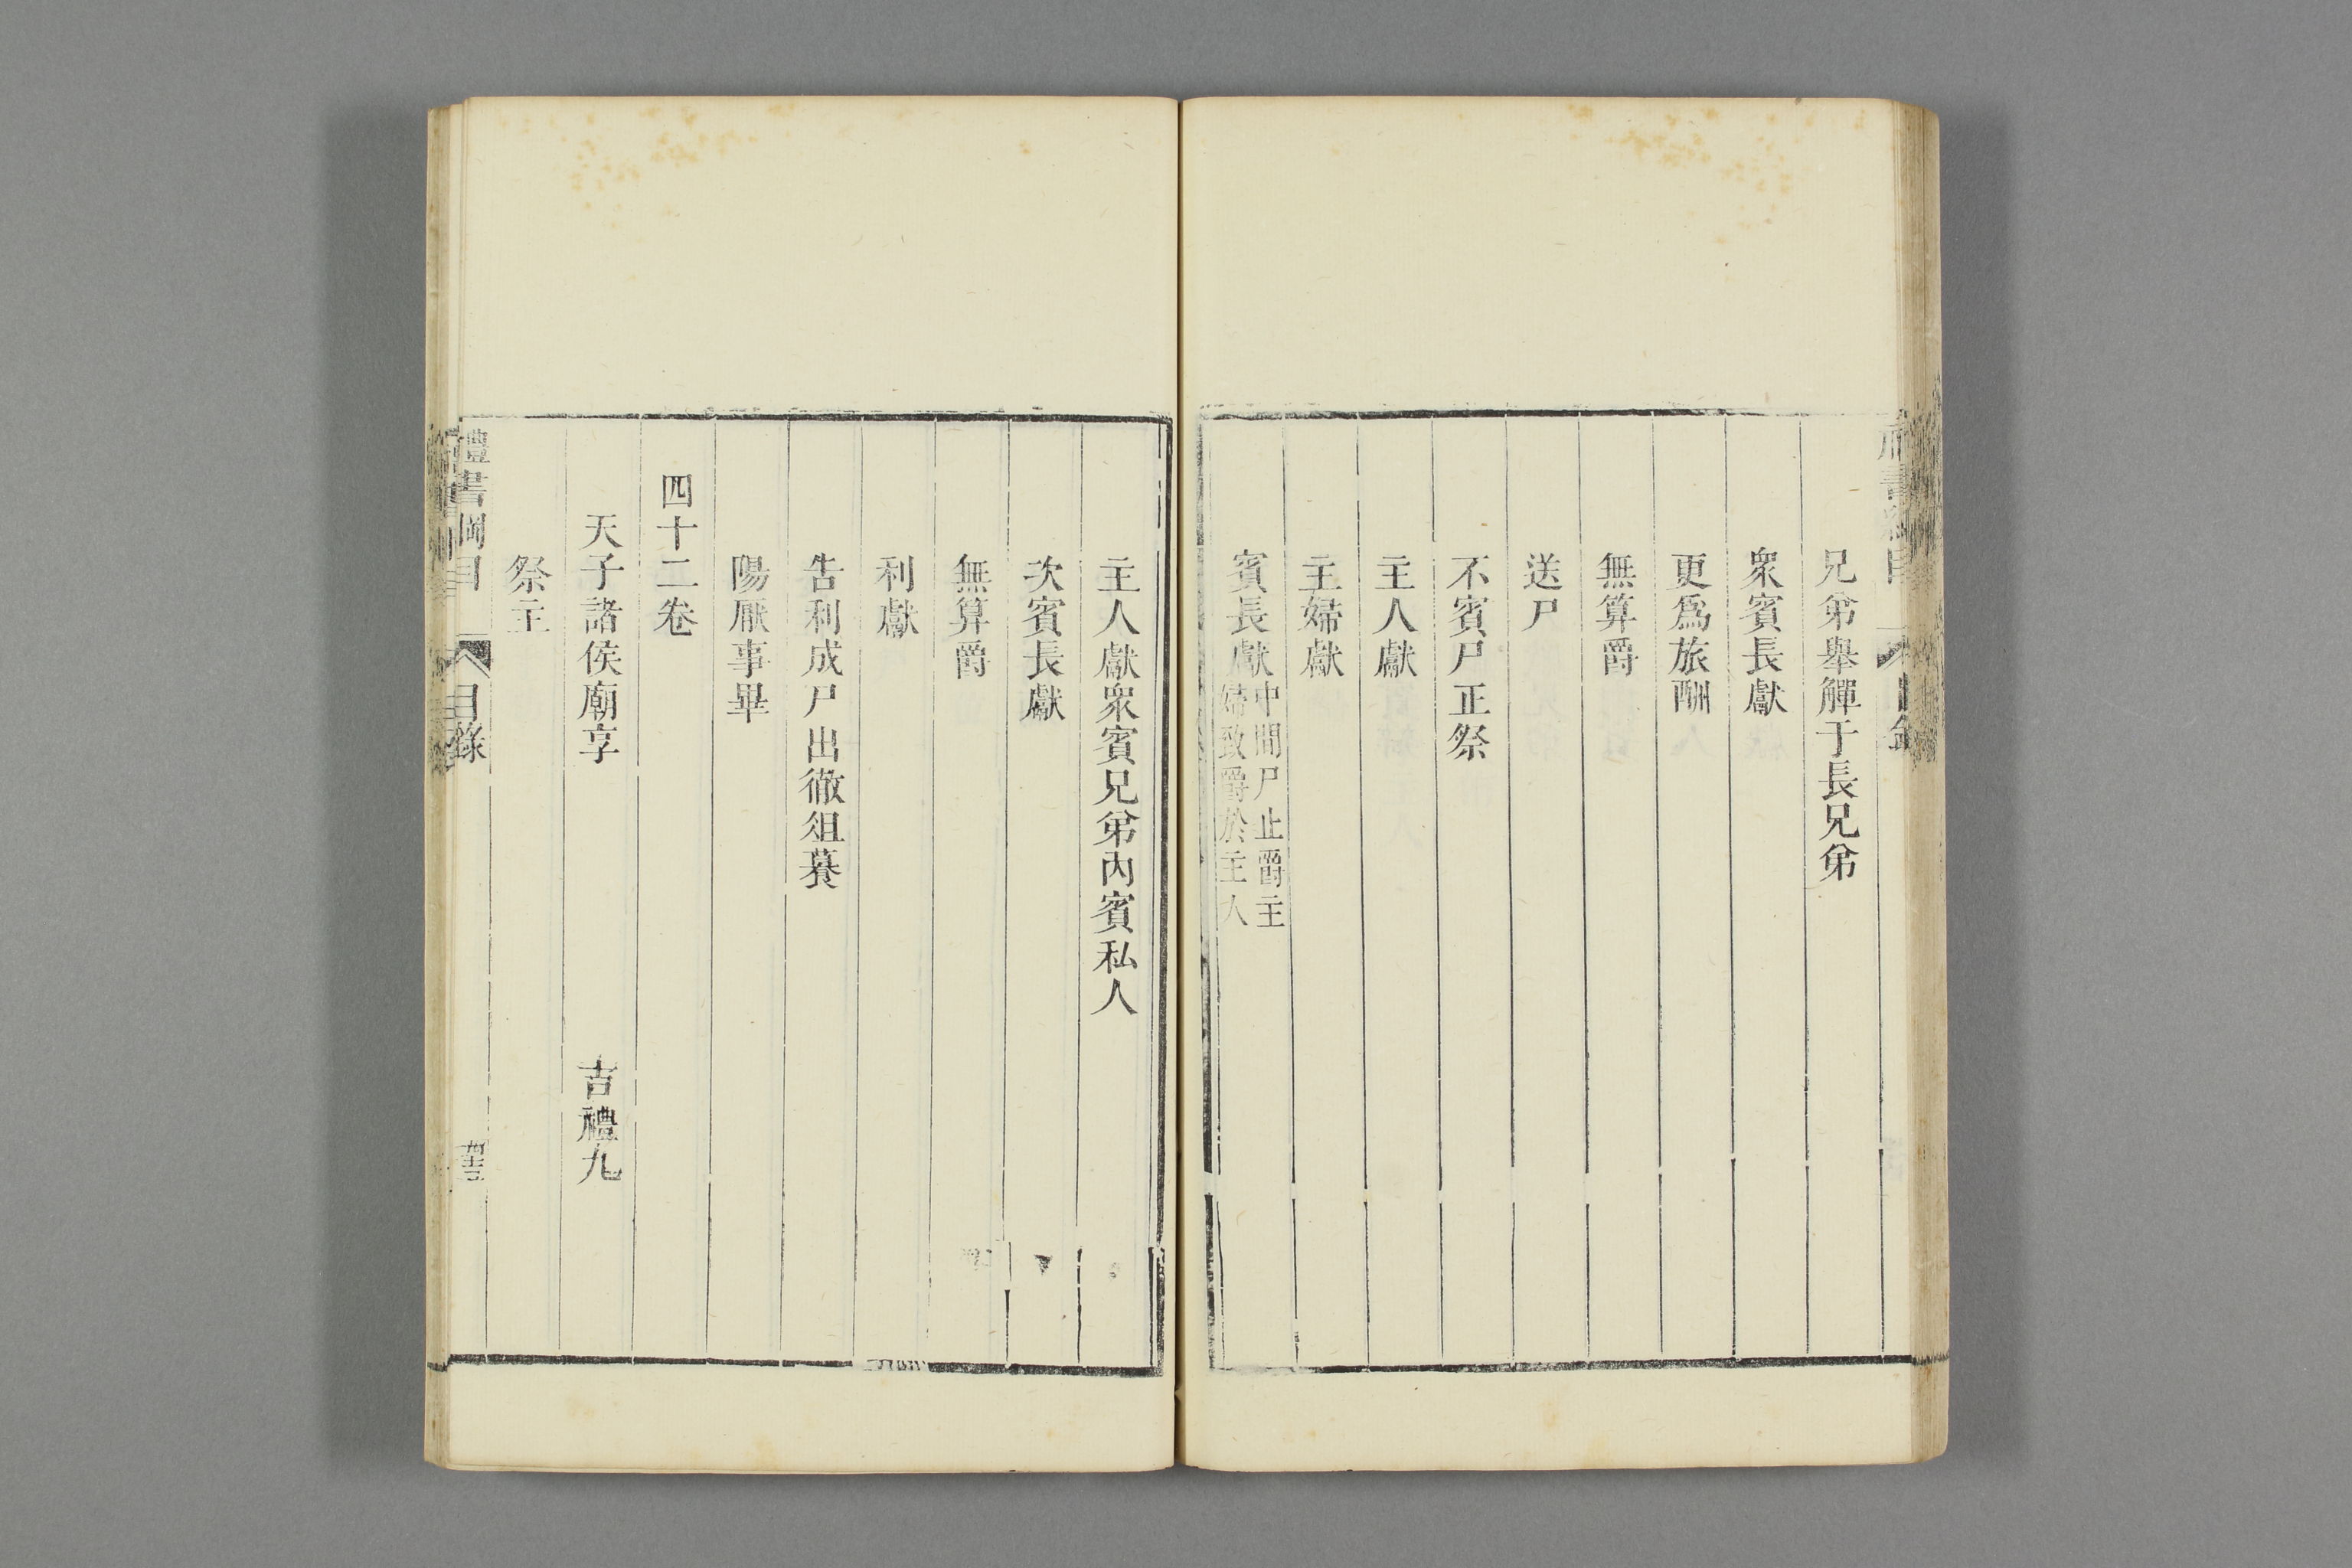 兄弟舉觶于長兄弟
衆賓長獻
更爲旅酬
無算爵
送尸
不賓尸正祭
主人獻
主婦獻
賓長獻中間尸止爵主
婦致爵於主人
主人獻衆賓兄弟內賓私人
次賓長獻
無算爵
利獻
告利成尸出徹俎餕
陽厭事畢
四十二卷
天子諸侯廟享 吉禮九
祭主
禮書綱目 目錄